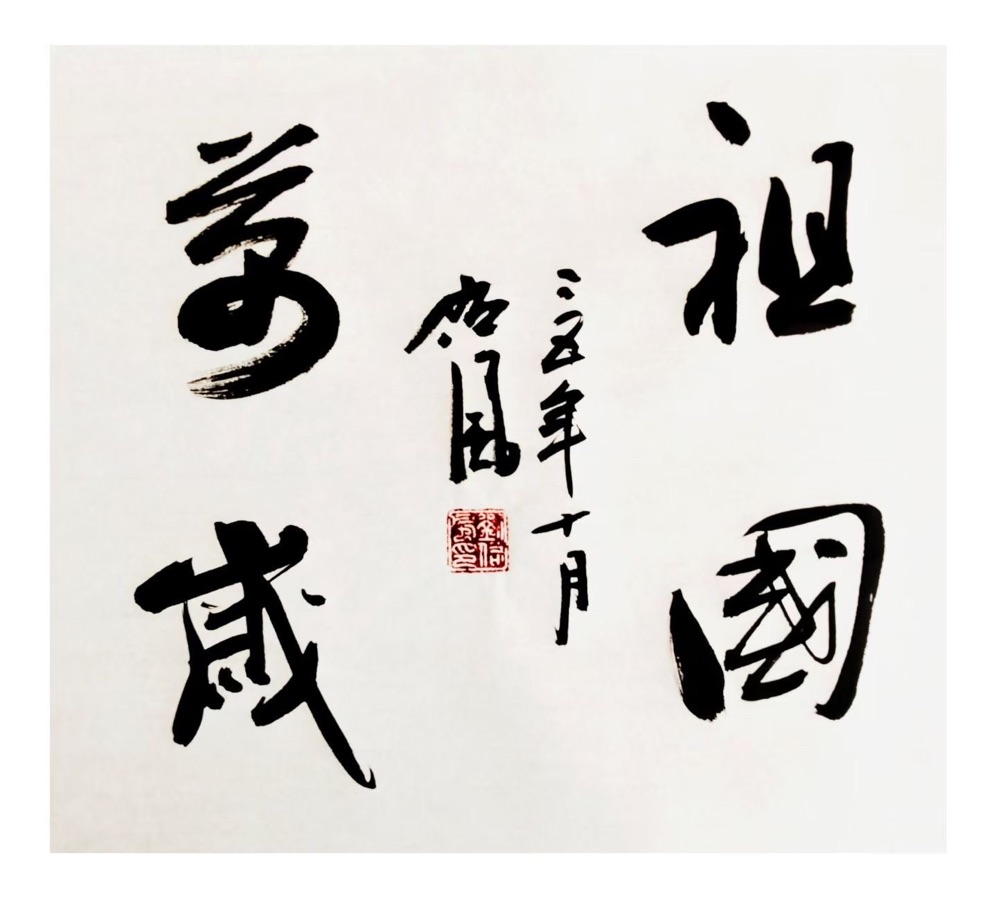 祖國
萬歲
二五年十月